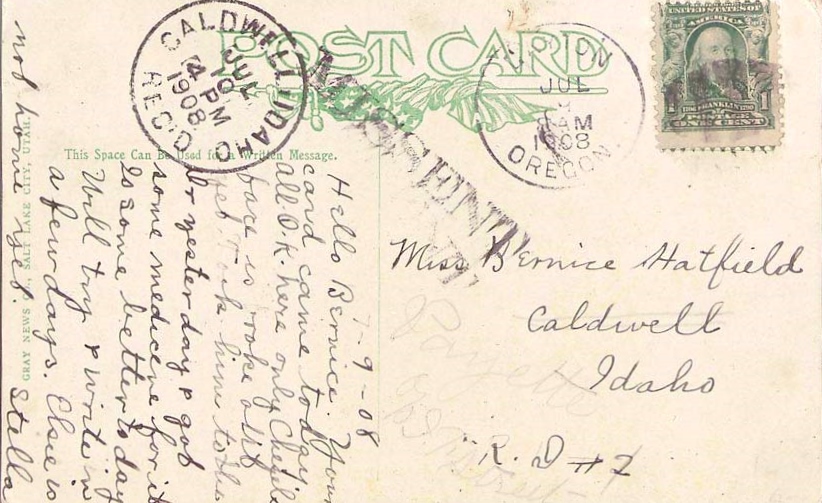 POST CARD
This Space Can Be Used for a Written Message.
CALDWELL, IDAHO
JUL
10
4 PM
1908
REC'D
MISSENT
UNION
JUL
9
AM
1908
OREGON
UNITED STATES OF
AMERICA
FRANKLIN
1 1
ONE CENT
GRAY NEWS CO., SALT LAKE CITY, UTAH
7-9-08
Hello Bernice. Your
card came today,
all O.K. here only
face is broke out
yet. Took him to the
Dr yesterday & got
some medecine for it
is some better today
Will try & write in
a few days. Elsie is
not home yet. Stella
Miss Bernice Hatfield
Caldwell
Idaho
R. D #2
Payette